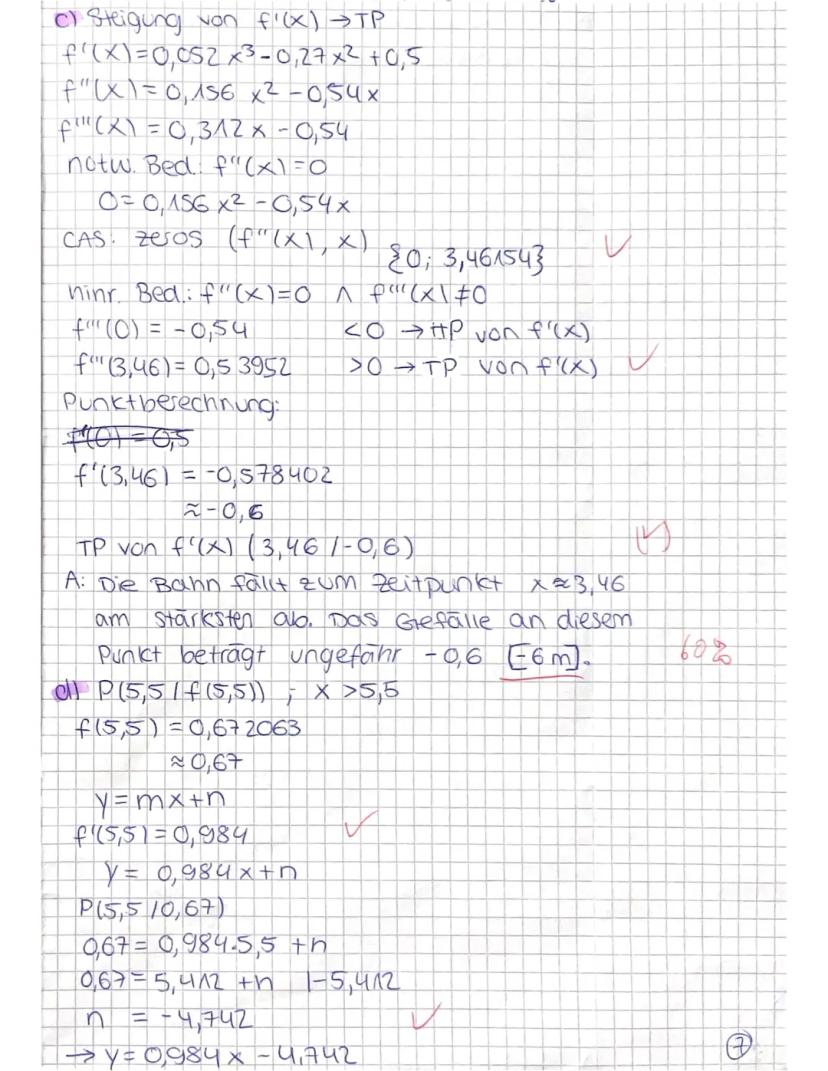 c) Steigung von f'(x) → TP
f'(x)=0,052 x³ - 0,27 x² + 0,5
f''(x) = 0,156 x² - 0,54x
f'''(x) = 0,312x - 0,54
notw. Bed.: f''(x)=0
0=0,156 x² - 0,54x
CAS: zeros (f''(x), x) {0; 3,46154} ✓
hinr. Bed.: f''(x)=0 ∧ f'''(x)≠0
f'''(0) = -0,54 <0 → HP von f'(x)
f'''(3,46) = 0,53952 >0 → TP von f'(x) ✓
Punktberechnung:
f'(0) = 0,5
f'(3,46) = -0,578402
≈-0,6
TP von f'(x) (3,46 / -0,6) (✓)
A: Die Bahn fällt zum Zeitpunkt x≈3,46
am stärksten ab. Das Gefälle an diesem
Punkt beträgt ungefähr -0,6 [-6m]. 60%
d) P(5,5 / f(5,5)) ; x >5,5
f(5,5) = 0,672063
≈ 0,67
y=mx+n
f'(5,5) = 0,984 ✓
y= 0,984x+n
P(5,5 / 0,67)
0,67= 0,984·5,5 +n
0,67= 5,412 +n |-5,412
n = -4,742 ✓
→ y= 0,984x - 4,742 ⑦